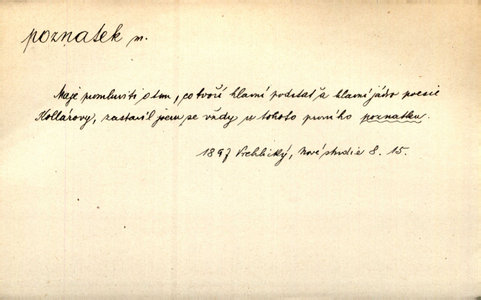 poznatek m.
Maje promluviti o tom, co tvoří hlavní podstatu a hlavní jádro poesie
Kollárovy, zastavil jsem se vždy u tohoto prvního poznatku.
1897 Vrchlický, Nové studie 8. 15.